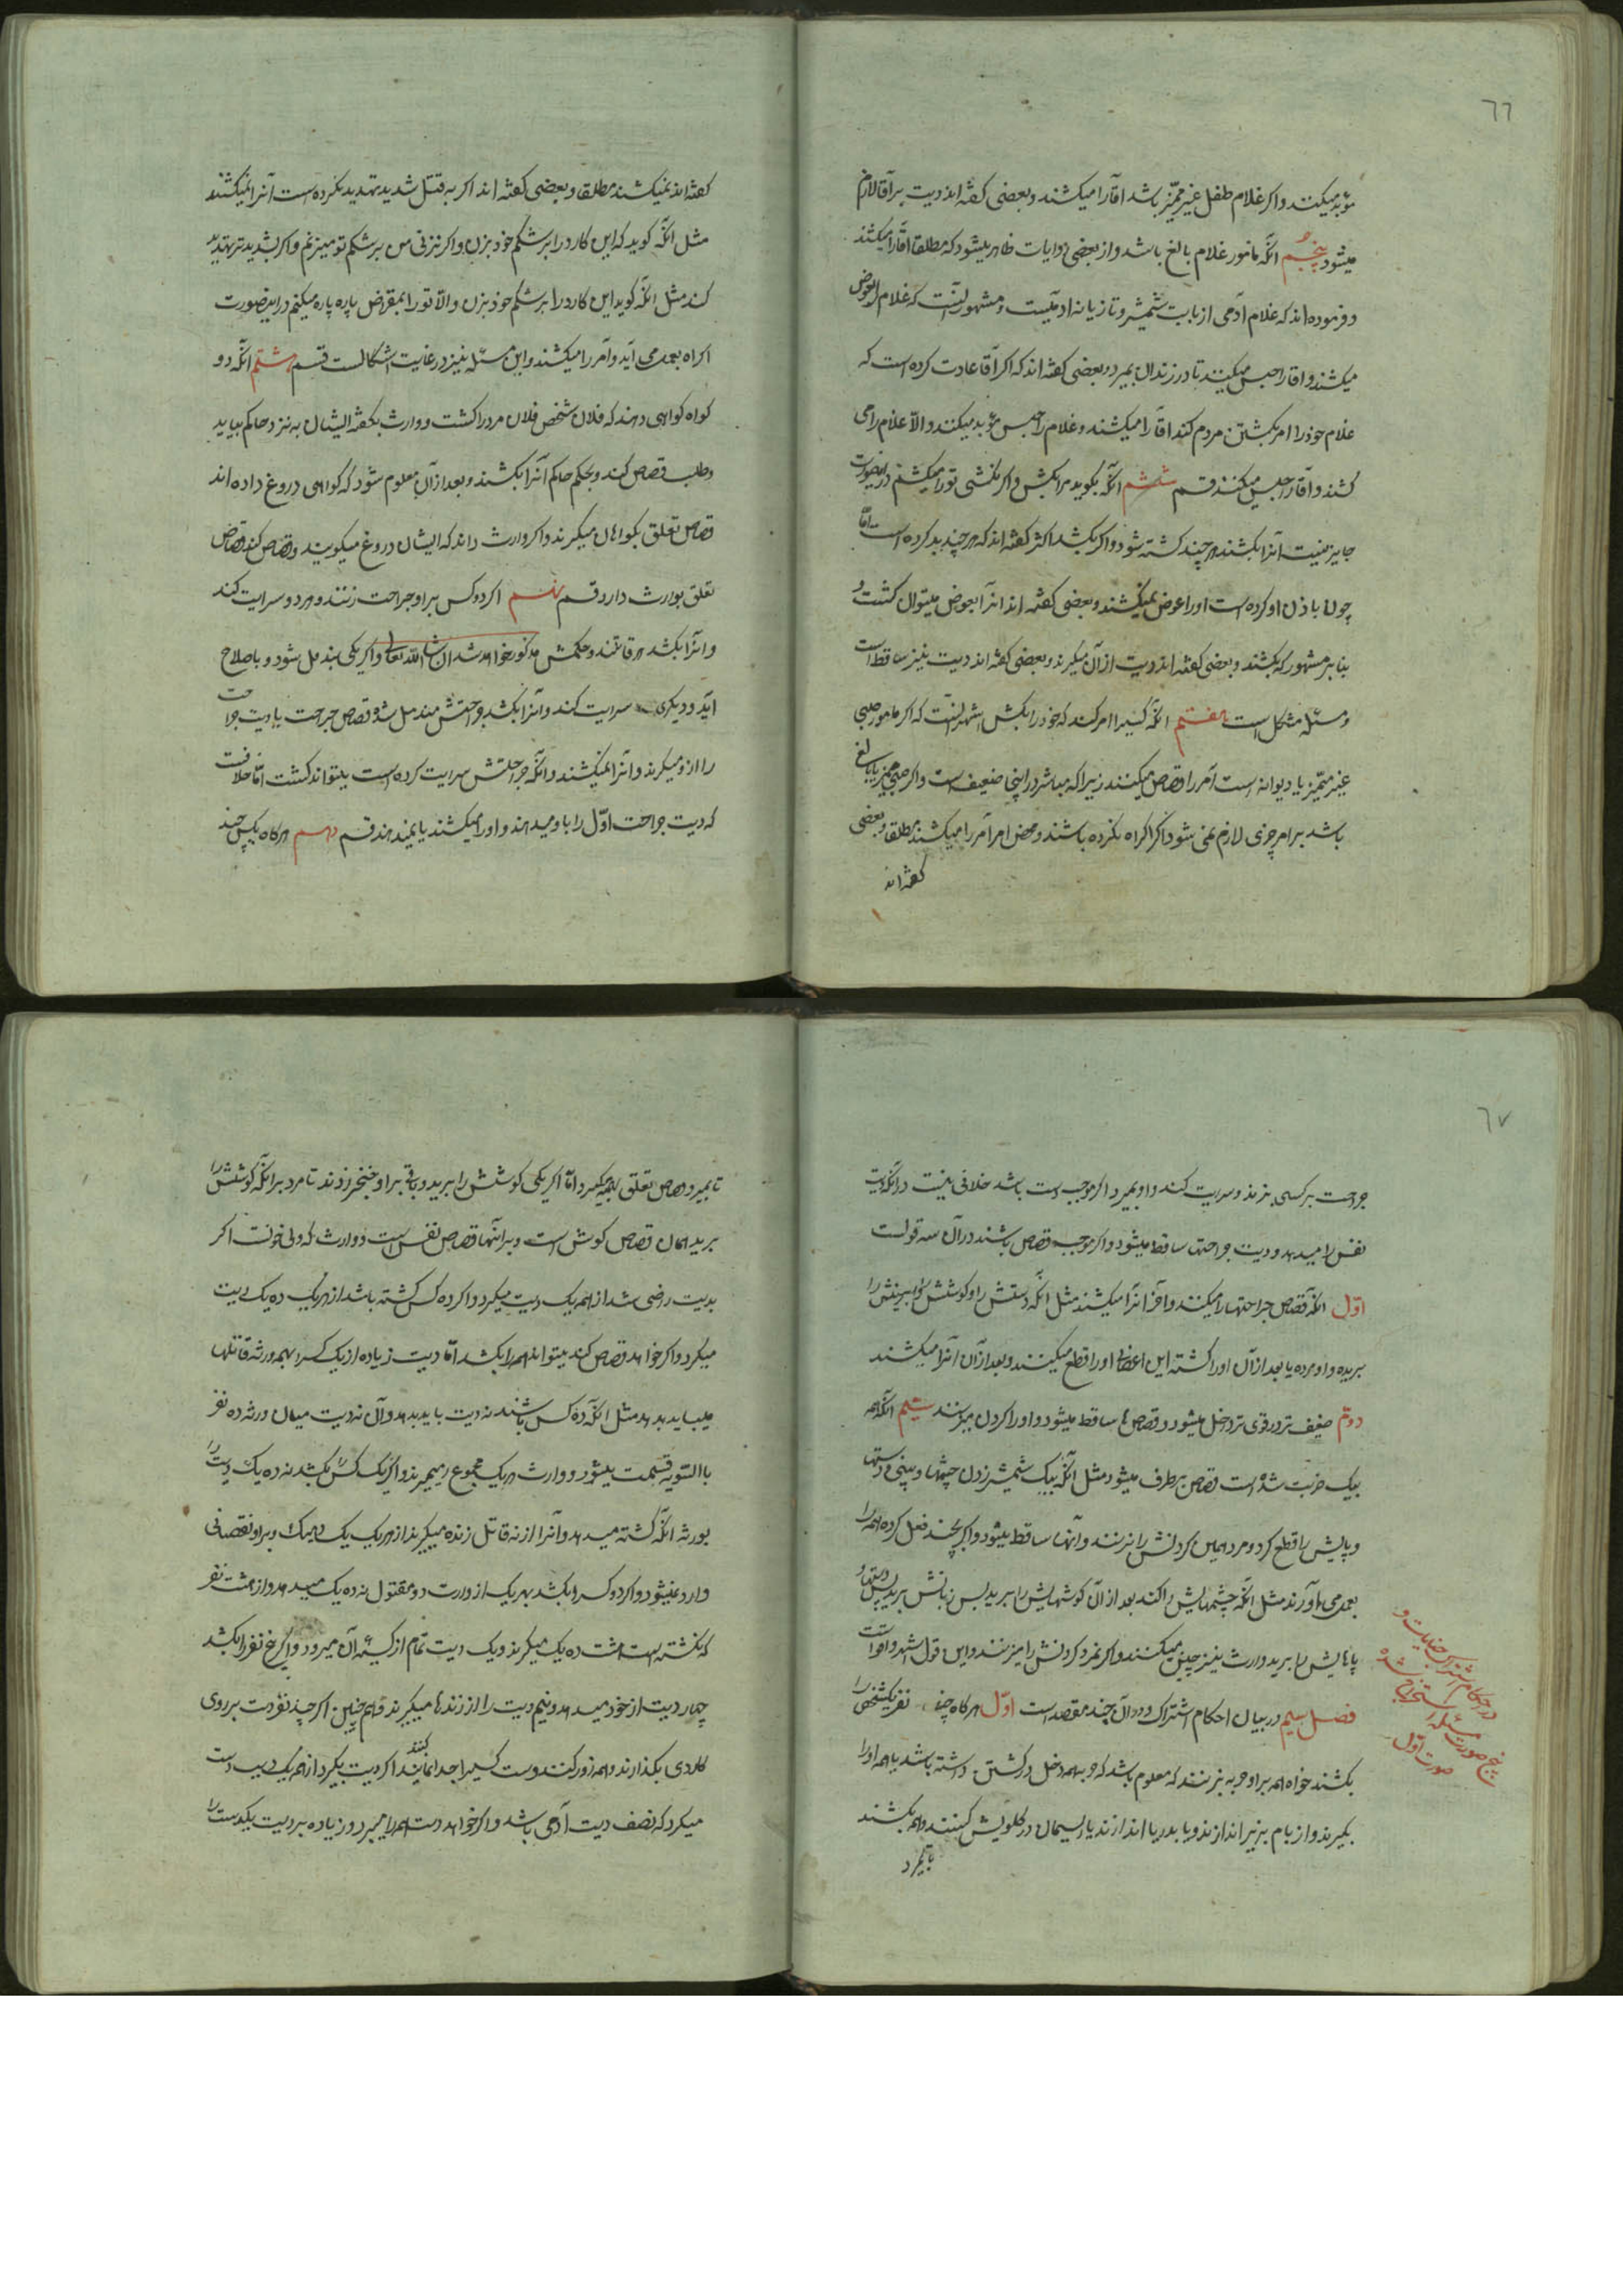 ٦٦
مؤبد میکنند و اکر غلام طفل غیر ممیّز باشد اقا را میکشند و بعضی کفته اند دیت بر آقا لازم
میشود پنجم انکه مامور غلام بالغ باشد و از بعضی روایات ظاهر میشود که مطلقا اقا را میکشند
و فرموده اند که غلام آدمی از بابت شمشیر و تازیانه ادمیست و مشهور اینست که غلام را بعوض
میکشند و اقا را حبس میکنند تا در زندان بمیرد و بعضی کفته اند که اکر آقا عادت کرده است که
غلام خود را امر بکشتن مردم کند اقا را میکشند و غلام را حبس مؤبد میکنند و الّا غلام را می
کشند و آقا را حبس میکنند قسم ششم انکه بکوید مرا بکش و اکر نکشی تو را میکشم در اینصورت
جایز نیست انرا بکشند هر چند کشته شود و اکر بکشد اکثر کفته اند که هر چند بد کرده است امّا
چون باذن او کرده است او را عوض نمیکشند و بعضی کفته اند انرا بعوض میتوان کشت و
بنابر مشهور که نکشند و بعضی کفته اند دیت از آن میکیرند و بعضی کفته اند دیت نیز ساقط است
و مسئله مشکل است هفتم انکه کسیرا امر کند که خود را بکش اشهر انست که اکر مامور صبی
غیر ممیّز یا دیوانه است آمر را قصاص میکنند زیرا که مباشر در اینجا ضعیف است و اکر صبی ممیز یا بالغ
باشد بر امر چیزی لازم نمی شود اکر اکراه نکرده باشند و محض امر آمر را میکشند مطلقا و بعضی
کفته اند
کفته اند نمیکشند مطلقا و بعضی کفته اند اکر به قتل شدید تهدید نکرده است آنرا نمیکشند
مثل انکه کوید که این کارد را بر شکم خود بزن و اکر نزنی من بر شکم تو میزنم و اکر بشدیدتر تهدید
کند مثل انکه کوید این کارد را بر شکم خود بزن و الّا تو را بمقراض پاره پاره میکنم در اینصورت
اکراه بعمل می آید و آمر را میکشند و این مسئله نیز در غایت اشکالست قسم هشتم انکه دو
کواه کواهی دهند که فلان شخص فلان مرد را کشت و وارث بکفته ایشان به نزد حاکم بیاید
و طلب قصاص کند و بحکم حاکم آنرا بکشند و بعد از آن معلوم شود که کواهی دروغ داده اند
قصاص تعلق بکواهان میکیرند و اکر وارث داند که ایشان دروغ میکویند و قصاص کند قصاص
تعلق بوارث دارد قسم نهم اکر دو کس بر او جراحت زنند و هر دو سرایت کند
و انرا بکشد هر قاتلند و حکمش مذکور خواهد شد ان شاء الله تعالی و اکر یکی مندمل شود و باصلاح
آید و دیکری سرایت کند و انرا بکشد و جراحتش مندمل شده قصاص جراحت یا دیت جراحت
را از و میکیرند و انرا نمیکشند و انکه جراحتش سرایت کرده است میتواند کشت امّا خلافست
که دیت جراحت اوّل را باو میدهند و او را میکشند یا نمیدهند قسم دهم هر کاه یکس چند
٦٧
جراحت بر کسی بزند و سرایت کند و او بمیرد اکر موجب دیت باشد خلافی نیست در آنکه دیت
نفس را میدهد و دیت جراحتها ساقط میشود و اکر موجب قصاص باشند در آن سه قولست
اوّل انکه قصاص جراحتها را میکنند و آخر انرا میکشند مثل انکه دستش را و کوشش را و بینیش را
بریده و او مرده یا بعد از آن او را کشته این اعضای او را قطع میکنند و بعد از آن انرا میکشند
دوّم ضعیف تر در قوی تر داخل میشود و قصاص ها ساقط میشود و او را کردن میزنند سیّم انکه اکر همه
بیک ضربت شده است قصاص برطرف میشود مثل انکه بیک شمشیر زدن چشمها و بینی و دستها
و پایش را قطع کرد و مرد همین کردنش را بزنند و آنها ساقط میشود و اکر بچند فعل کرده همه را
بعمل می آورند مثل انکه چشمهایش را کند بعد از آن کوشهایش را برید پس زبانش برید پس دستها و
پاهایش را برید وارث نیز چنین میکنند و اکر نمرد کردنش را میزنند و این قول اشهر و اقوا است
فصل سیم در بیان احکام اشتراک و در آن چند مقصد است اوّل هر کاه چند نفر یکشخص را
بکشند خواه همه بر او حربه بزنند که معلوم باشد که حربه همه دخل در کشتن داشته باشد یا همه او را
بکیرند و از بام بزیر اندازند و یا بدریا اندازند یا ریسمان در کلویش کنند و همه بکشند
تا بمیرد
در احکام اشتراک جنایات و
پنج صورت مسئله استخراج شده
صورت اوّل
تا بمیرد قصاص تعلق بهمه میکیرد امّا اکر یکی کوشش را ببرید و باقی بر او خنجر زدند تا مرد بر انکه کوشش را
برید همان قصاص کوش است و بر اینها قصاص نفس است و وارث که ولی خونست اکر
بدیت راضی شد از همه یک دیت میکیرد و اکر ده کس کشته باشد از هر یک ده یک دیت
میکیرد و اکر خواهد قصاص کند میتواند همه را بکشد امّا دیت زیاده از یک کس را بهمه ورثه قاتلها
میباید بدهد مثل انکه ده کس باشند نه دیت باید بدهد و آن نه دیت میان ورثه ده نفر
باالسّویه قسمت میشود و وارث هر یک مجموع را میبرند و اکر یک کس را بکشد نه ده یک دیت را
بورثه انکه کشته میدهد و آنرا از نه قاتل زنده میکیرند از هر یک یک ده یک و بر او نقصانی
وارد نمیشود و اکر دو کس را بکشد بهر یک از وارث دو مقتول نه ده یک میدهد و از هشت نفر
که نکشته است هشت ده یک میکیرند و یک دیت تمام از کیسه آن میرود و اکر پنج نفر را بکشد
چهار دیت از خود میدهد و نیم دیت را از زندها میکیرند و هم چنین اکر چند نفر دست بر روی
کاردی بکذارند و همه زور کنند و دست کسی را جدا نمایند اکر دیت بکیرد از همه یک دیت دست
میکیرد که نصف دیت آدمی باشد و اکر خواهد دست همه را میبرد و زیاده بر دیت یکدست را